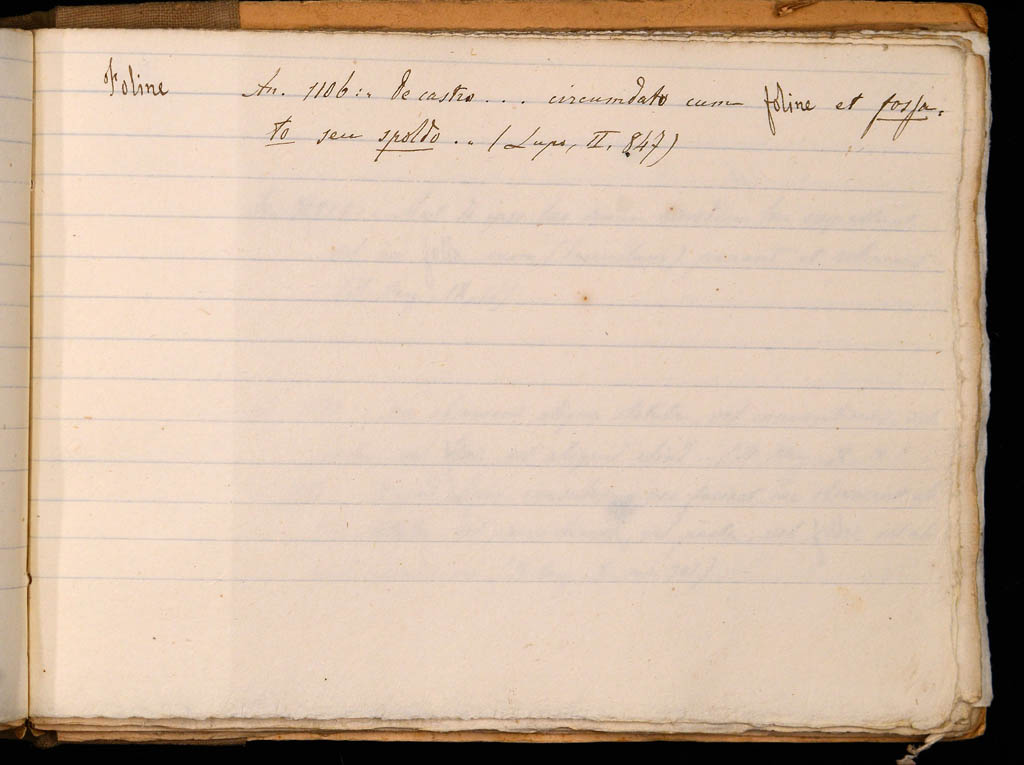 Foline An. 1106:. De castro... circumdato cum foline et fossa-
to seu spoldo.. (Lupo, II, 847)